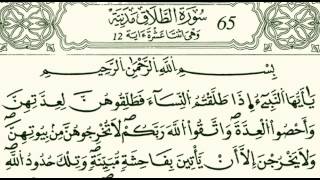 65 سُورَةُ الطَّلَاقِ مَدَنِيَّة
وَهِيَ اثْنَتَا عَشْرَةَ ءَايَة 12
بِسْمِ اللَّهِ الرَّحْمَٰنِ الرَّحِيمِ
يَٰٓأَيُّهَا النَّبِىُّ إِذَا طَلَّقْتُمُ النِّسَآءَ فَطَلِّقُوهُنَّ لِعِدَّتِهِنَّ
وَأَحْصُوا الْعِدَّةَ وَاتَّقُوا اللَّهَ رَبَّكُمْ لَا تُخْرِجُوهُنَّ مِنْ بُيُوتِهِنَّ
وَلَا يَخْرُجْنَ إِلَّا أَنْ يَأْتِينَ بِفَاحِشَةٍ مُبَيِّنَةٍ وَتِلْكَ حُدُودُ اللَّهِ